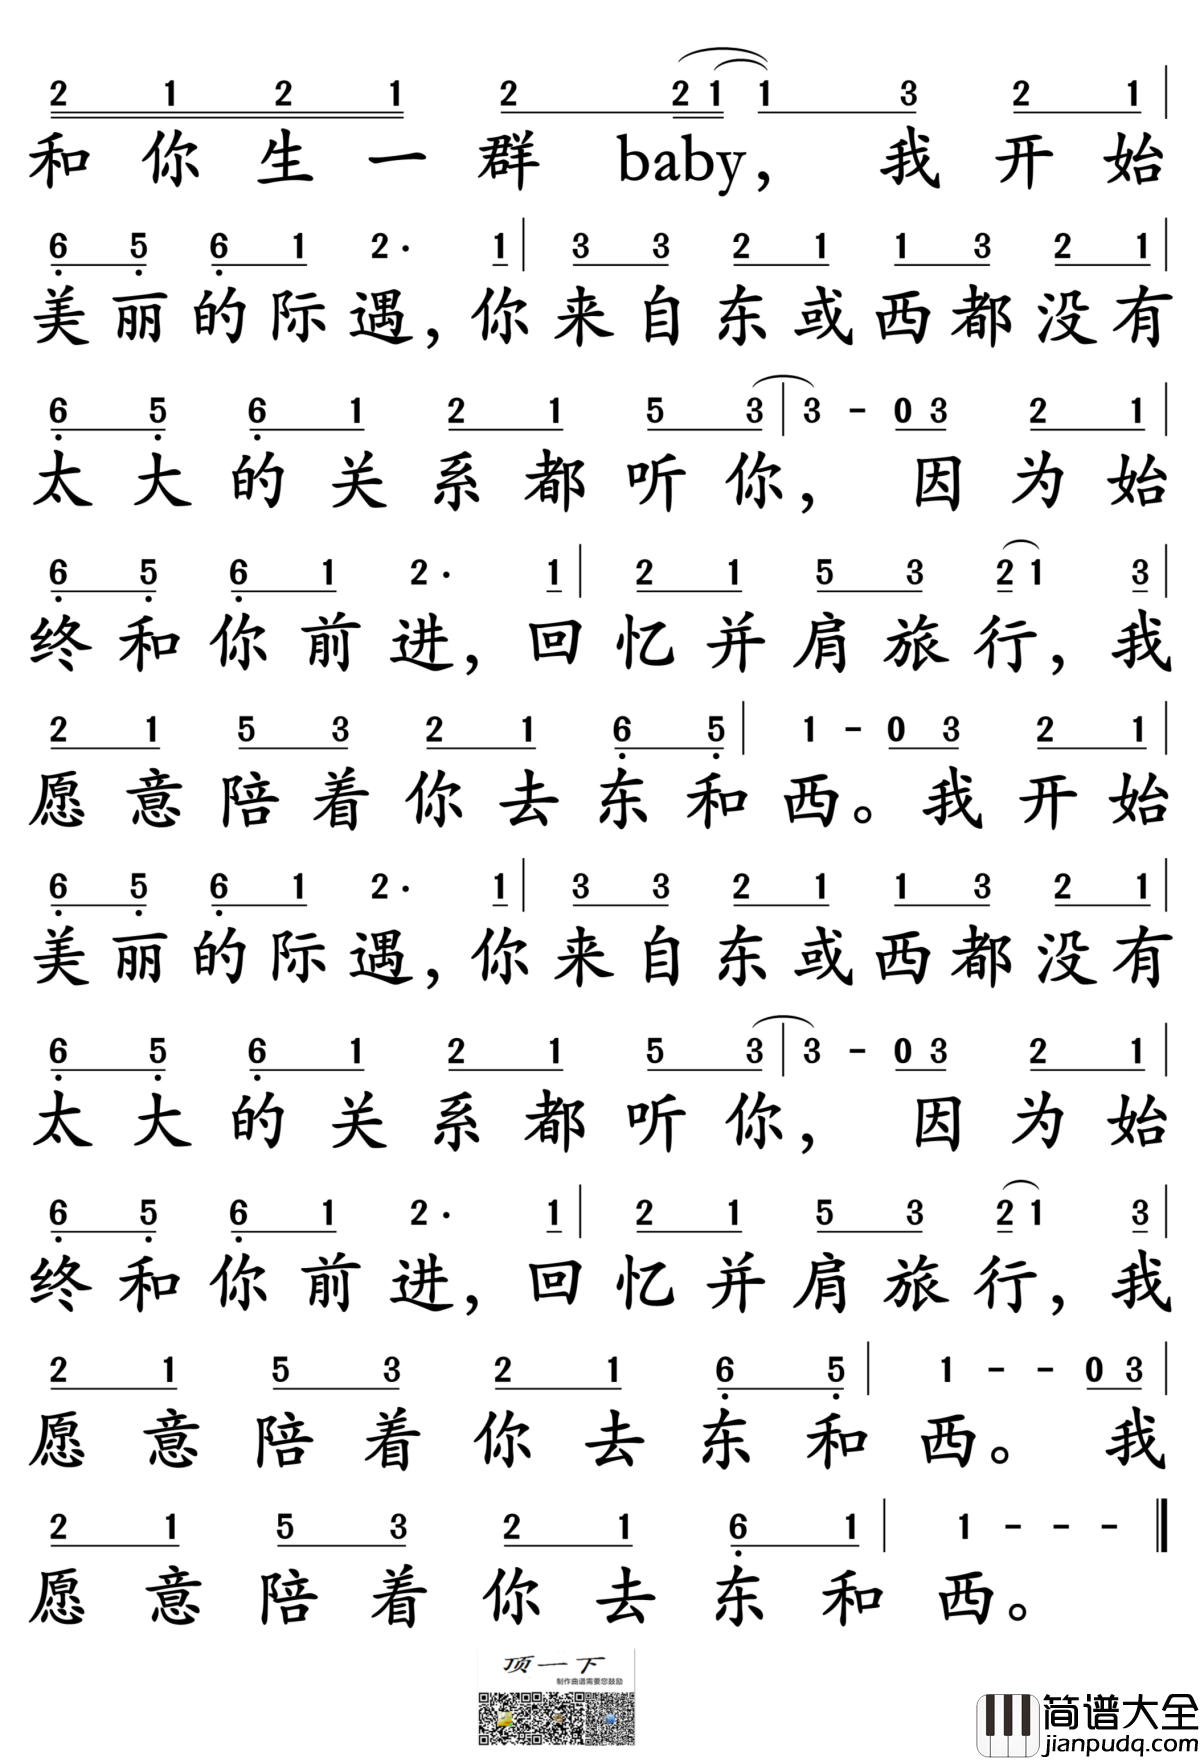 2 1 2 1 2 2 1 1 3 2 1 |
和 你 生 一 群 baby， 我 开 始
6 5 6 1 2 · 1 | 3 3 2 1 1 3 2 1 |
美 丽 的 际 遇， 你 来 自 东 或 西 都 没 有
6 5 6 1 2 1 5 3 | 3 - 0 3 2 1 |
太 大 的 关 系 都 听 你， 因 为 始
6 5 6 1 2 · 1 | 2 1 5 3 2 1 3 |
终 和 你 前 进， 回 忆 并 肩 旅 行， 我
2 1 5 3 2 1 6 5 | 1 - 0 3 2 1 |
愿 意 陪 着 你 去 东 和 西。 我 开 始
6 5 6 1 2 · 1 | 3 3 2 1 1 3 2 1 |
美 丽 的 际 遇， 你 来 自 东 或 西 都 没 有
6 5 6 1 2 1 5 3 | 3 - 0 3 2 1 |
太 大 的 关 系 都 听 你， 因 为 始
6 5 6 1 2 · 1 | 2 1 5 3 2 1 3 |
终 和 你 前 进， 回 忆 并 肩 旅 行， 我
2 1 5 3 2 1 6 5 | 1 - - 0 3 |
愿 意 陪 着 你 去 东 和 西。 我
2 1 5 3 2 1 6 1 | 1 - - - ‖
愿 意 陪 着 你 去 东 和 西。
顶一下
制作曲谱需要您鼓励
简谱大全
jianpudq.com